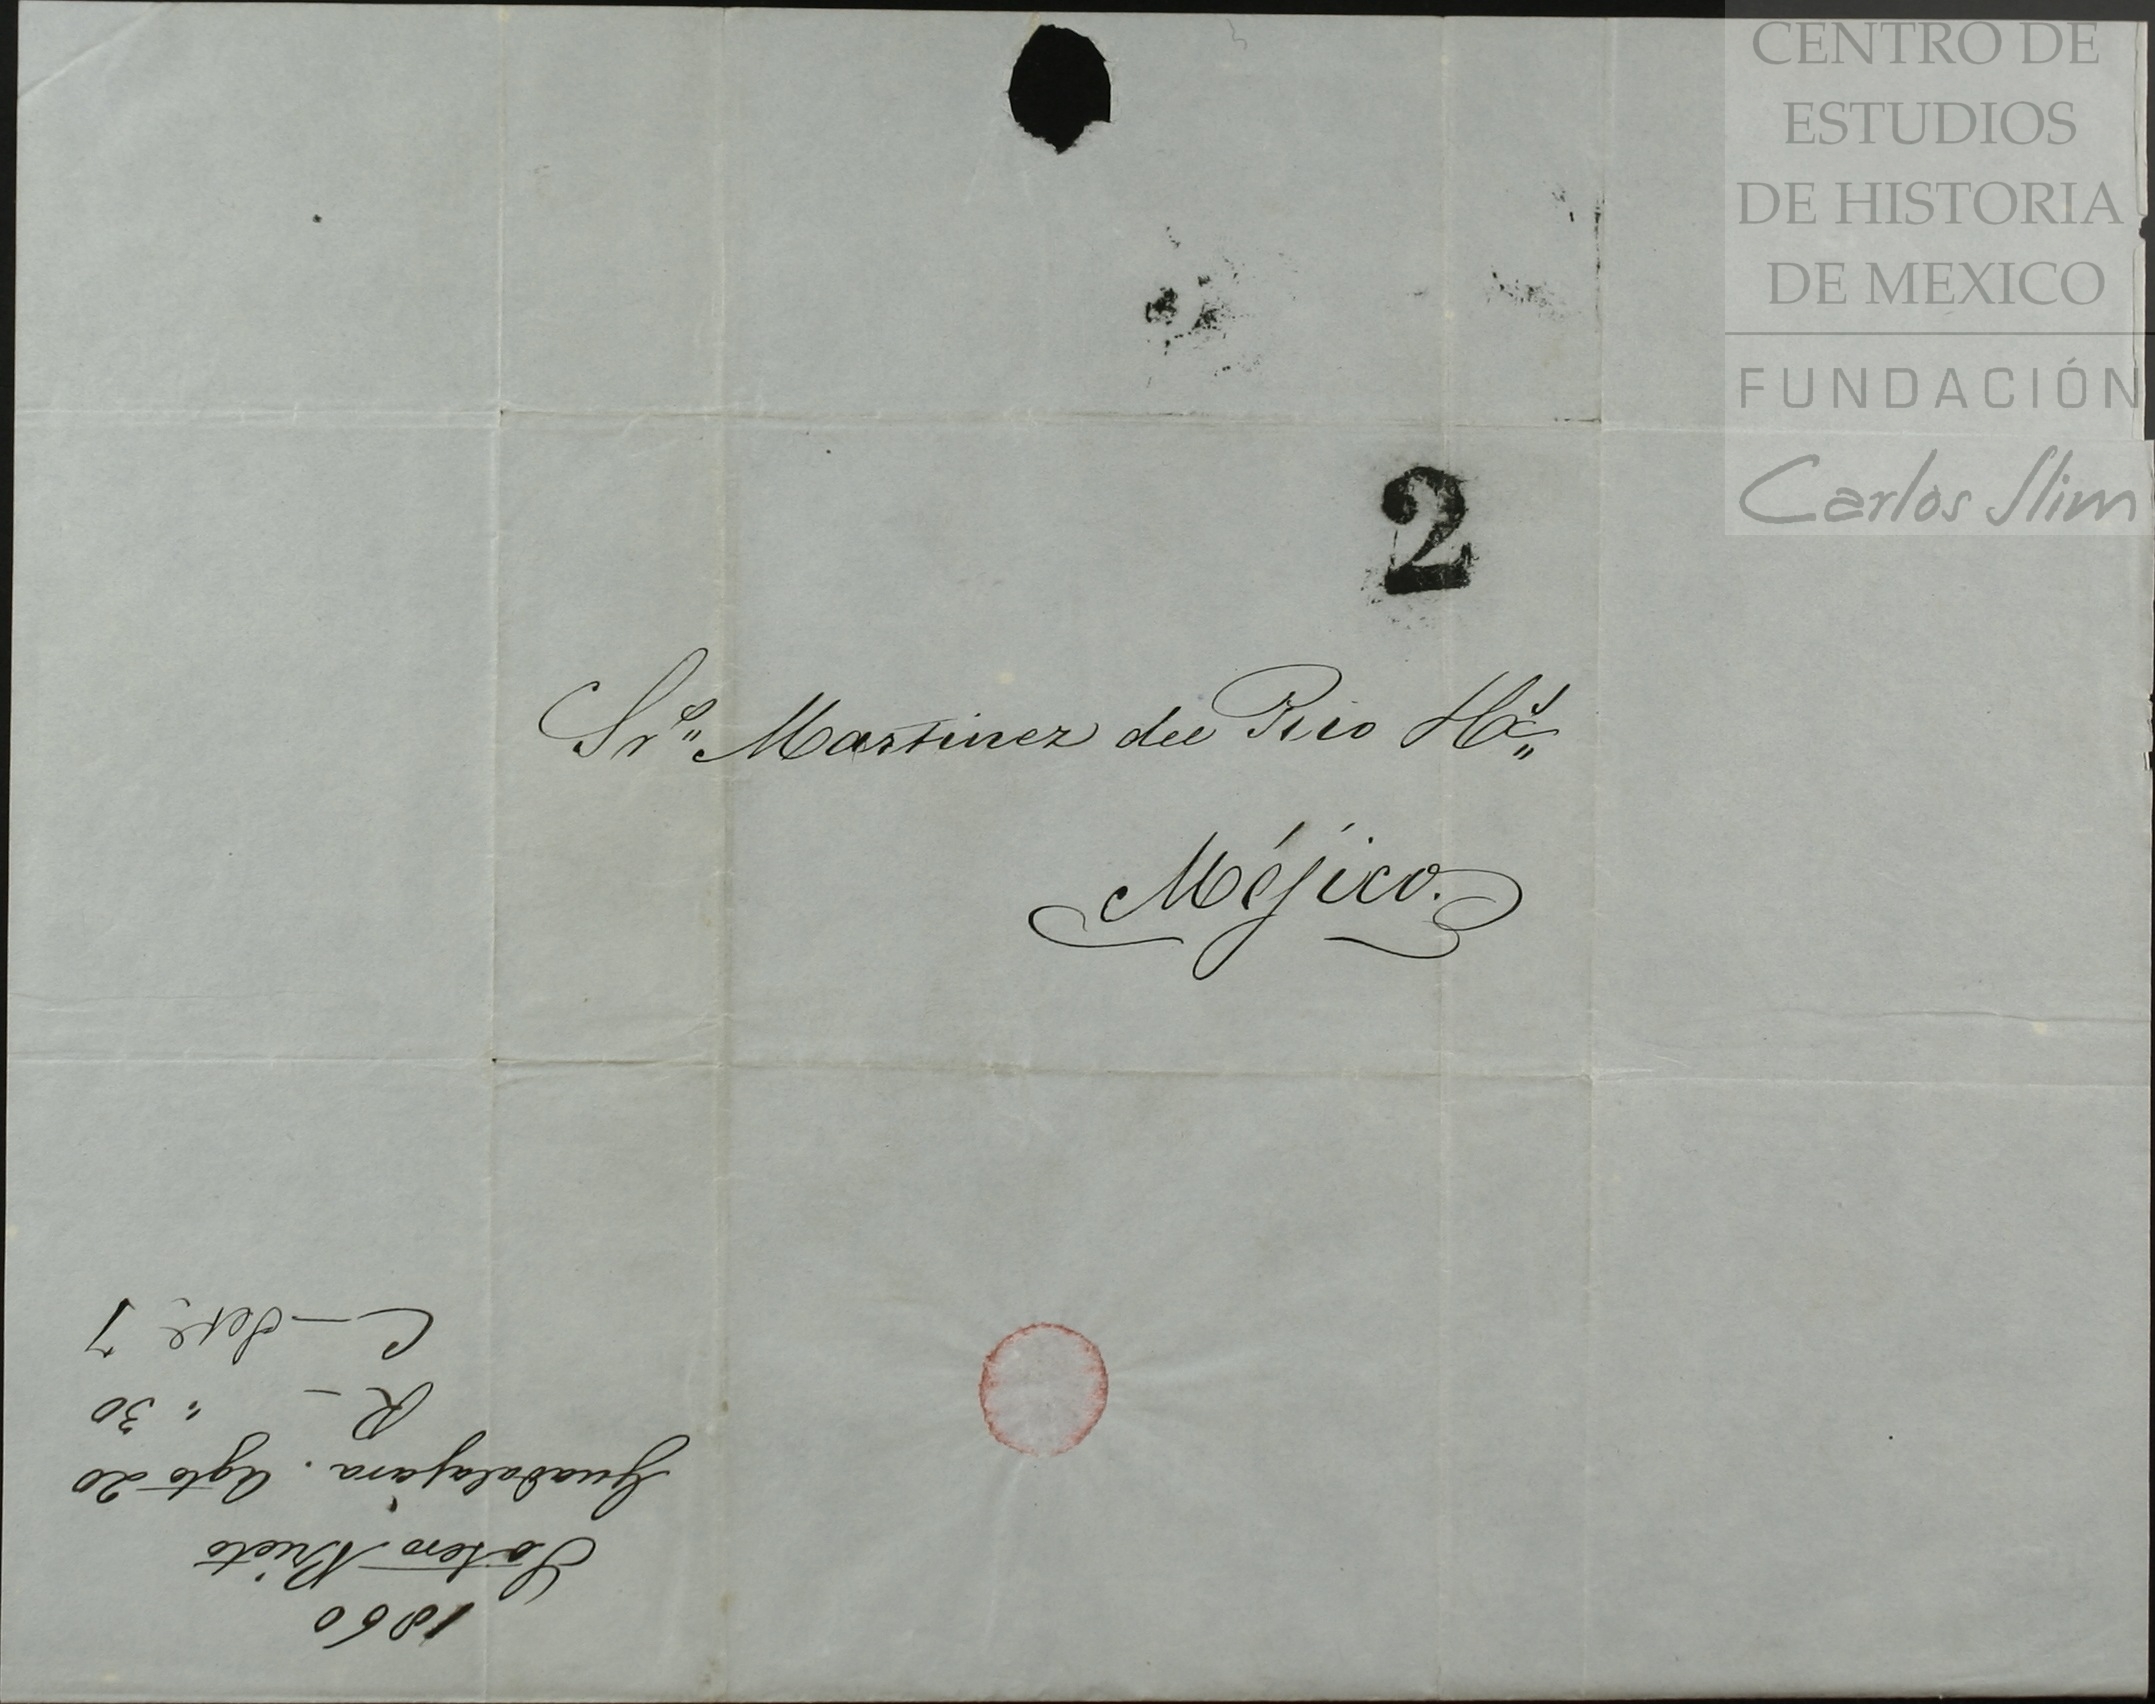 CENTRO DE
ESTUDIOS
DE HISTORIA
DE MEXICO
FUNDACIÓN
Carlos Slim
2
Srs Martinez del Rio Hs
Méjico.
1860
Sotero Prieto
Guadalajara. Agto 20
R — " 30
C — Set 7